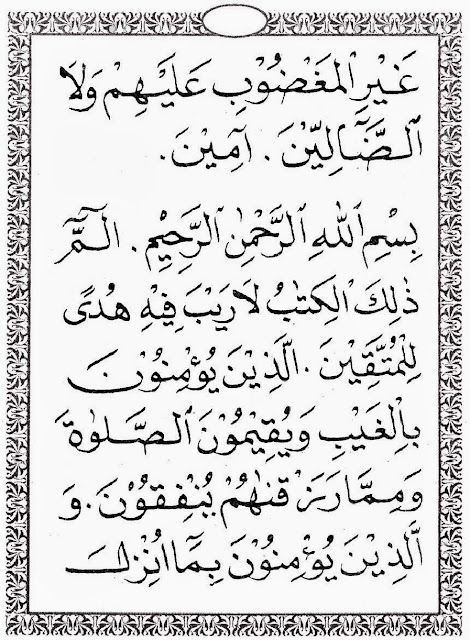 غَيْرِ الْمَغْضُوْبِ عَلَيْهِمْ وَلَا
ٱلضَّآلِّيْنَ . آمِيْنَ .
بِسْمِ ٱللهِ ٱلرَّحْمٰنِ ٱلرَّحِيْمِ . الٓمّٓ
ذٰلِكَ الْكِتٰبُ لَا رَيْبَ فِيْهِ هُدًى
لِلْمُتَّقِيْنَ . الَّذِيْنَ يُؤْمِنُوْنَ
بِالْغَيْبِ وَيُقِيْمُوْنَ ٱلصَّلٰوةَ
وَمِمَّا رَزَقْنٰهُمْ يُنْفِقُوْنَ . وَ
الَّذِيْنَ يُؤْمِنُوْنَ بِمَا اُنْزِلَ